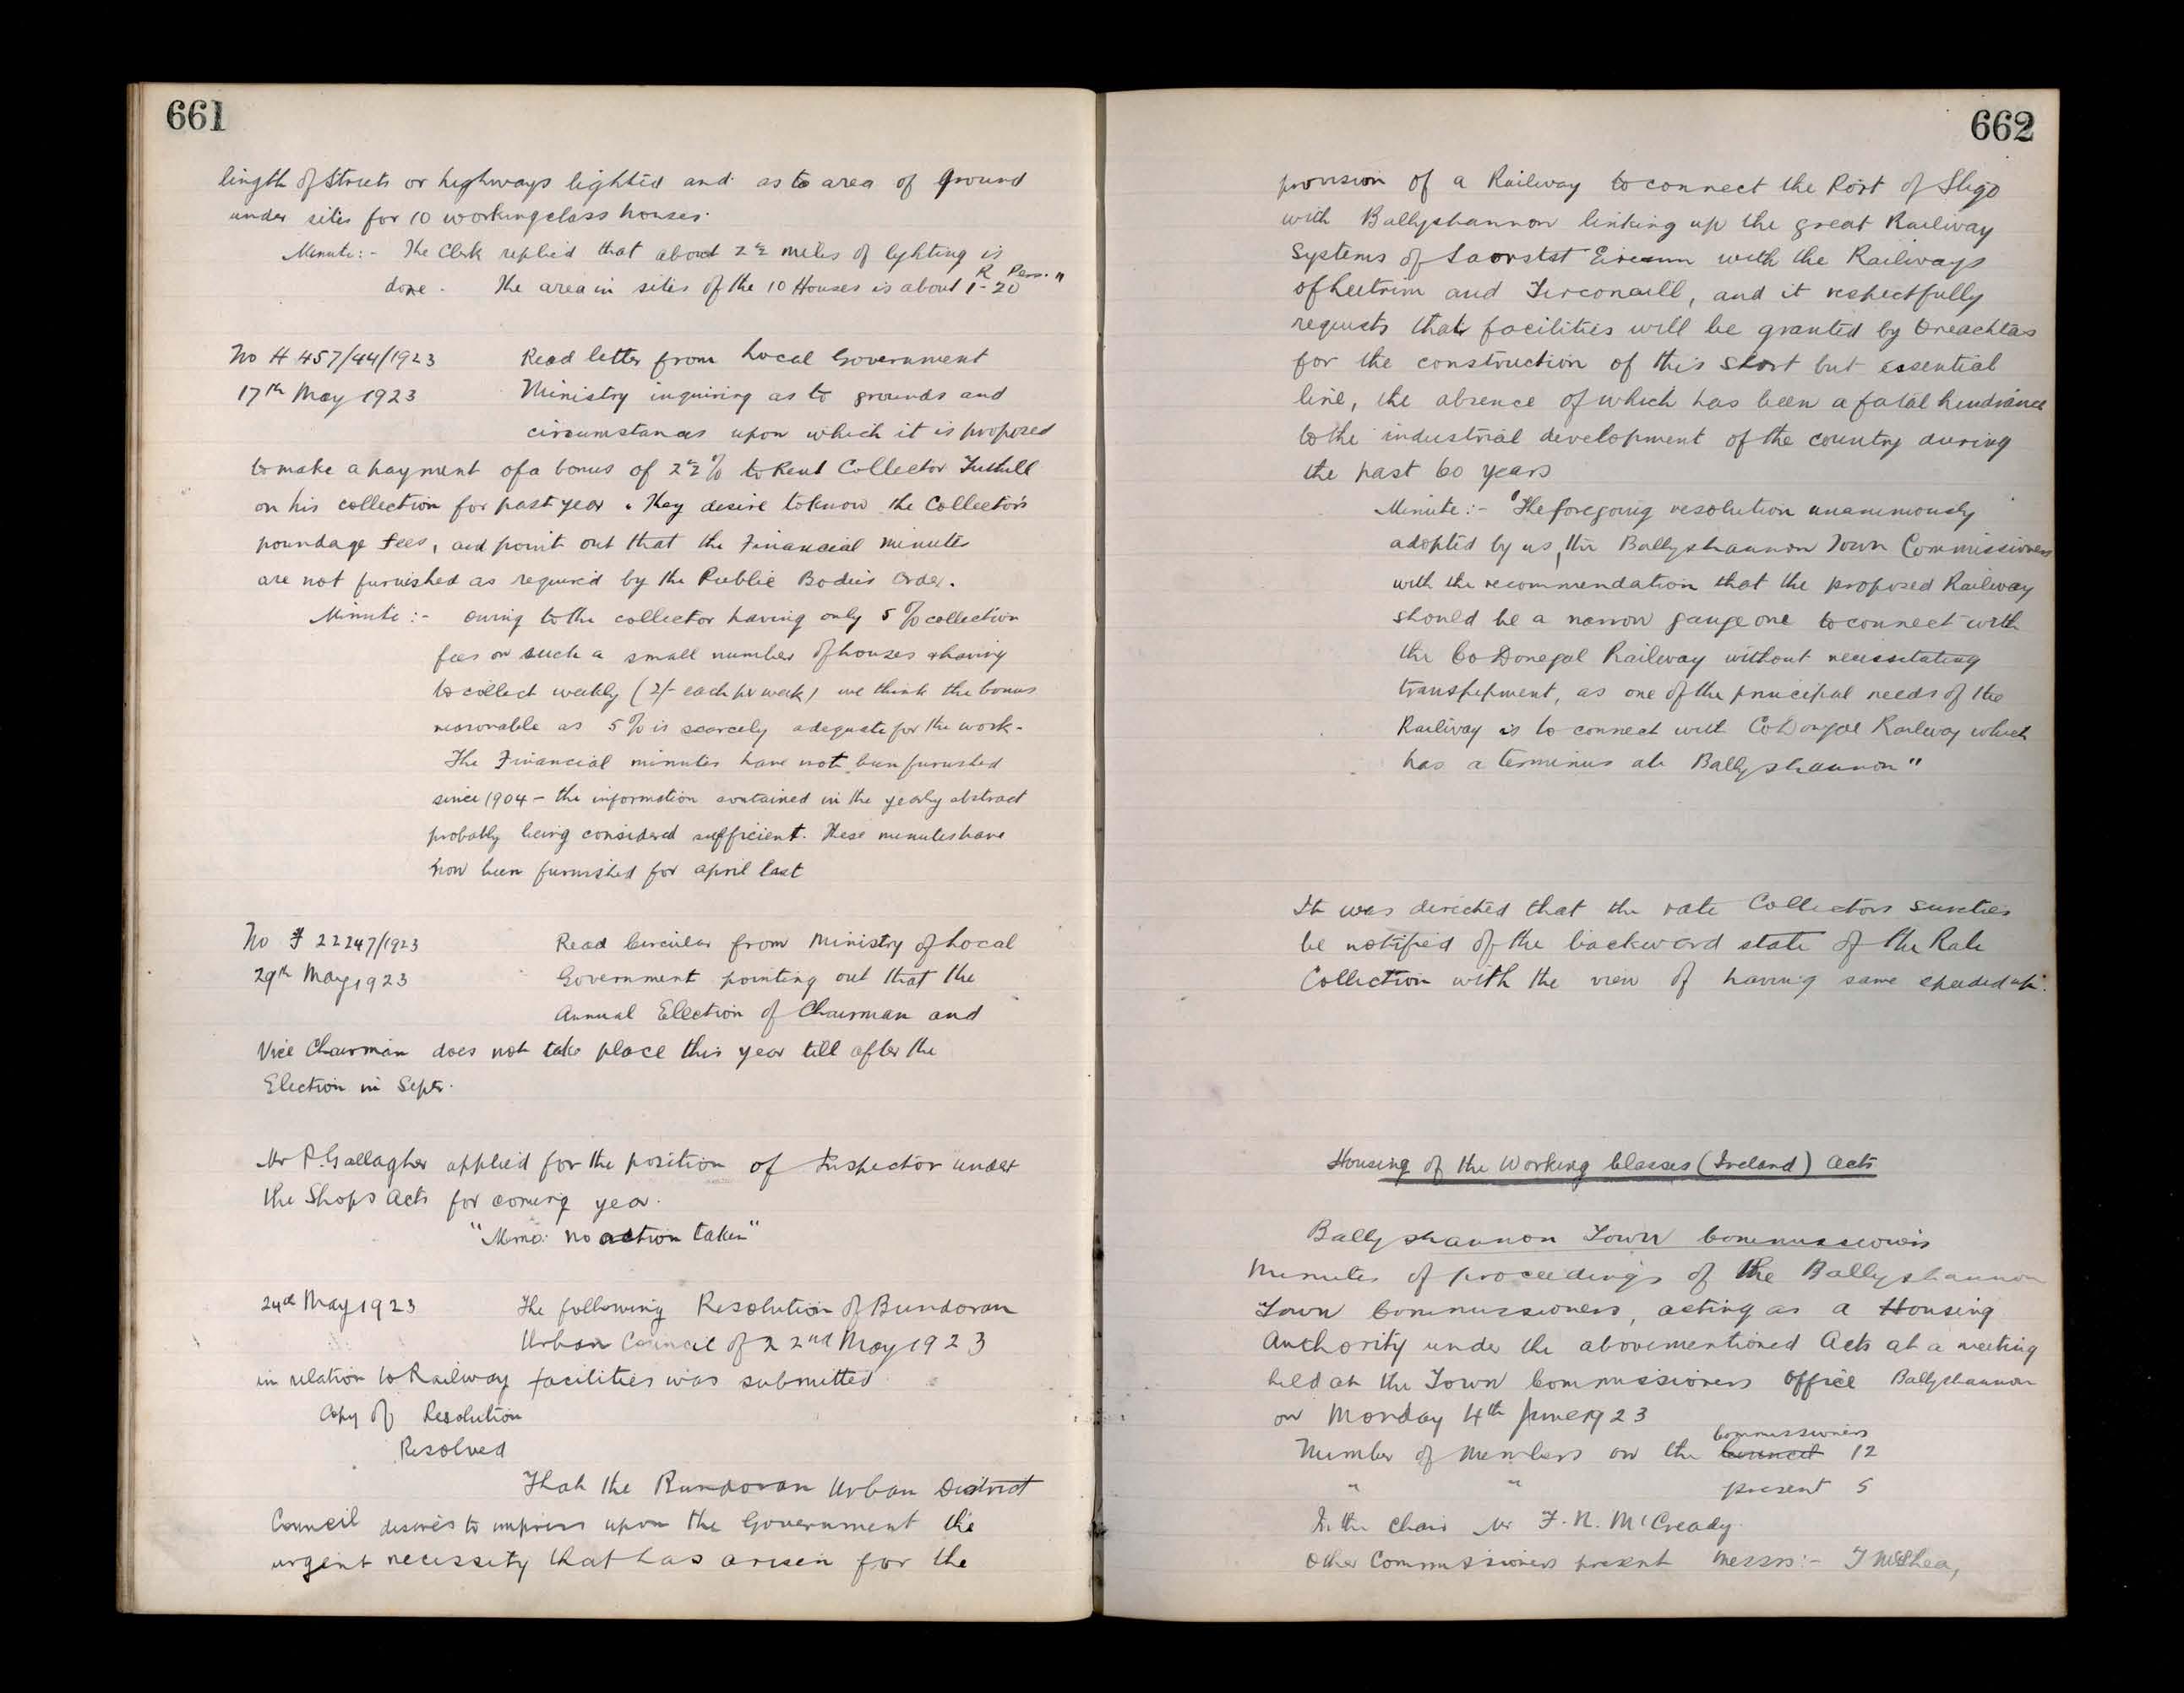 661
length of Streets or highways lighted and as to area of ground
under sites for 10 workingclass houses.
Minute:- The Clerk replied that about 2½ miles of lighting is
done. The area in sites of the 10 Houses is about 1R-20 Pers."
No H 457/44/1923 Read letter from Local Government
17th May 1923 Ministry inquiring as to grounds and
circumstances upon which it is proposed
to make a payment of a bonus of 2½% to Rent Collector Tuthill
on his collection for past year. They desire to know the Collectors
poundage Fees, and point out that the Financial minutes
are not furnished as required by the Public Bodies Order.
Minute:- Owing to the collector having only 5% collection
fees on such a small number of houses & having
to collect weekly (2/- each per week) we think the bonus
reasonable as 5% is scarcely adequate for the work-
The Financial minutes have not been furnished
since 1904 - the information contained in the yearly abstract
probably being considered sufficient. These minutes have
now been furnished for april last
No F 22247/1923 Read Circular from Ministry of Local
29th May 1923 Government pointing out that the
Annual Election of Chairman and
Vice Chairman does not take place this year till after the
Election in Sept.
Mr P. Gallagher applied for the position of Inspector under
the Shops Acts for coming year.
"Memo: no action taken"
24th May 1923 The following Resolution of Bundoran
Urban Council of 22nd May 1923
in relation to Railway facilities was submitted
Copy of Resolution
Resolved
That the Bundoran Urban District
Council desires to impress upon the Government the
urgent necessity that has arisen for the
662
provision of a Railway to connect the Port of Sligo
with Ballyshannon linking up the great Railway
Systems of Saorstst Eireann with the Railways
of Leitrim and Tirconaill, and it respectfully
requests that facilities will be granted by Oreachtas
for the construction of this short but essential
line, the absence of which has been a fatal hindrance
to the industrial development of the country during
the past 60 years
Minute:- "The foregoing resolution unanimously
adopted by us, the Ballyshannon Town Commissioners
with the recommendation that the proposed Railway
should be a narrow gauge one to connect with
the Co Donegal Railway without necessitating
transhipment, as one of the principal needs of the
Railway is to connect with Co Donegal Railway which
has a terminus at Ballyshannon"
It was directed that the rate Collectors sureties
be notified of the backward state of the Rate
Collection with the view of having same speeded up.
Housing of the Working Classes (Ireland) Acts
Ballyshannon Town Commissioners
Minutes of proceedings of the Ballyshannon
Town Commissioners, acting as a Housing
Authority under the abovementioned Acts at a meeting
held at the Town Commissioners Office Ballyshannon
on Monday 4th June 1923
Commissioners
Number of Members on the Council 12
" " present 5
In the Chair Mr F. N. McCready.
Other Commissioners present Messrs:- T McShea,